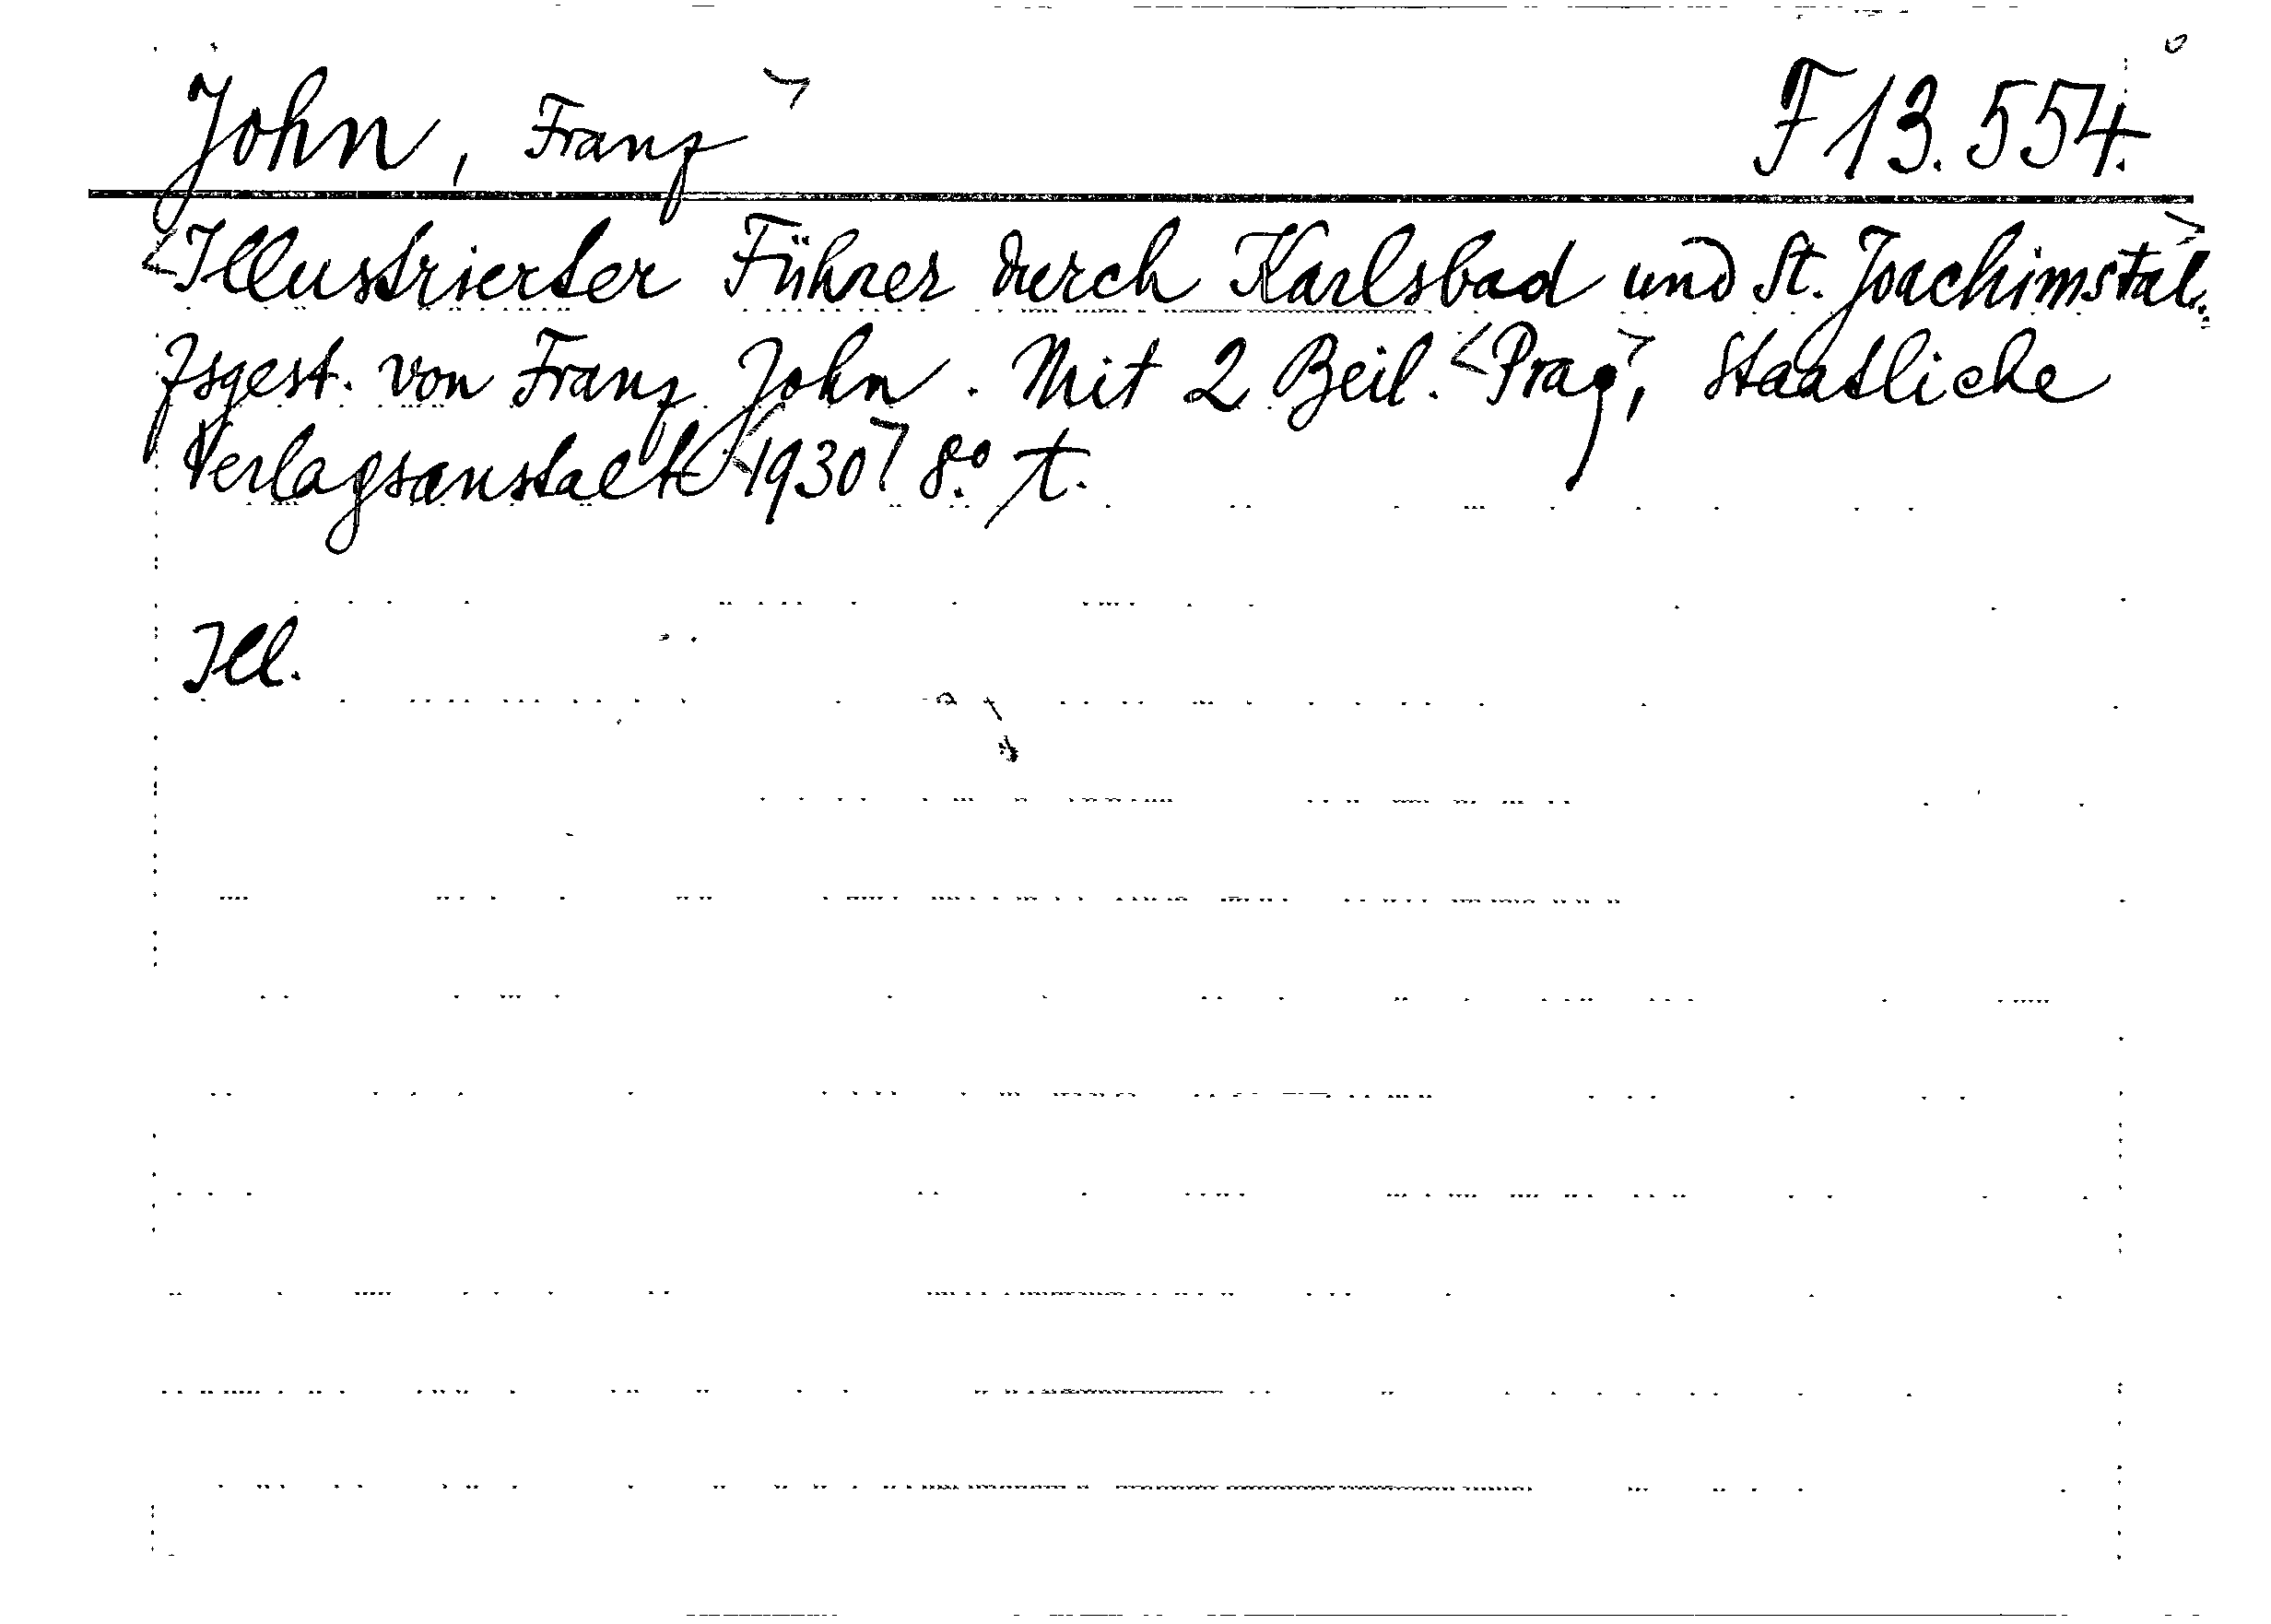 John, Franz > F 13.554.
<Illustrierter Führer durch Karlsbad und St. Joachimstal.>
Zsgest. von Franz John. Mit 2 Beil. <Prag>, Staatliche
Verlagsanstalt <1930> 8.° t.
Ill.